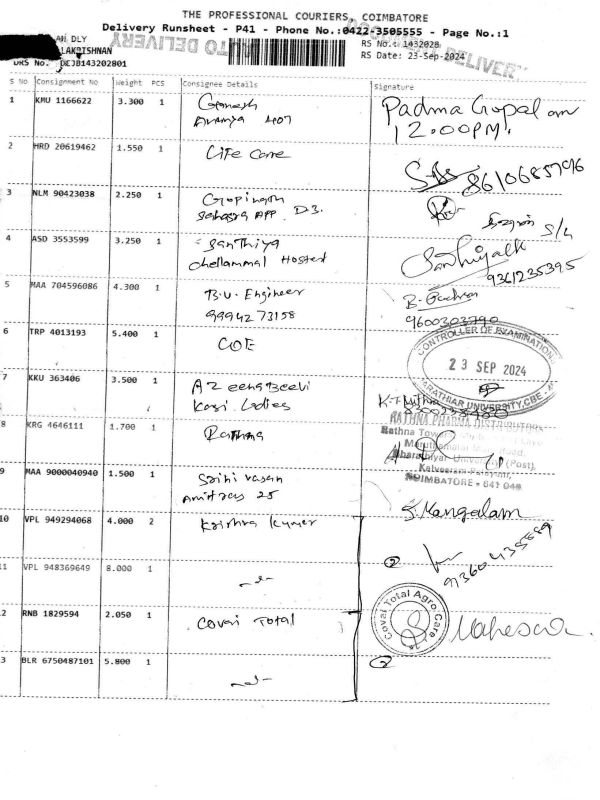 THE PROFESSIONAL COURIERS, COIMBATORE
Delivery Runsheet - P41 - Phone No.:0422-3505555 - Page No.:1
DLY
LAKRISHNAN
RS No.: 1432028
DRS No.
RS Date: 23-Sep-2024
S No Consignment No Weight PCS Consignee Details Signature
1 KMU 1166622 3.300 1 Ganesh
Ananya 407
Padma Gopalan
12.00PM.
2 HRD 20619462 1.550 1 Life Care
3 NLM 90423038 2.250 1 Gopinath
Sahasra APP. D3.
S/L
4 ASD 3553599 3.250 1 Santhiya
Chellammal Hostel
9361235395
5 MAA 704596086 4.300 1 B.U. Engineer
9994273158
9600303790
6 TRP 4013193 5.400 1 COE
CONTROLLER OF EXAMINATIONS
23 SEP 2024
BHARATHIAR UNIVERSITY, CBE
7 KKU 363406 3.500 1
Ladies
8 KRG 4646111 1.700 1 Rathna
RATHNA PHARMA DISTRIBUTORS
Rathna Tower
Bharathiyar University (Post),
Kalveerampalayam,
COIMBATORE - 641 046
9 MAA 9000040940 1.500 1 Srini vasan
25
S. Mangalam
10 VPL 949294068 4.000 2 Krishna Kumar
2
11 VPL 948369649 8.000 1
12 RNB 1829594 2.050 1 Covai Total
Covai Total Agro Care
13 BLR 6750487101 5.800 1
2